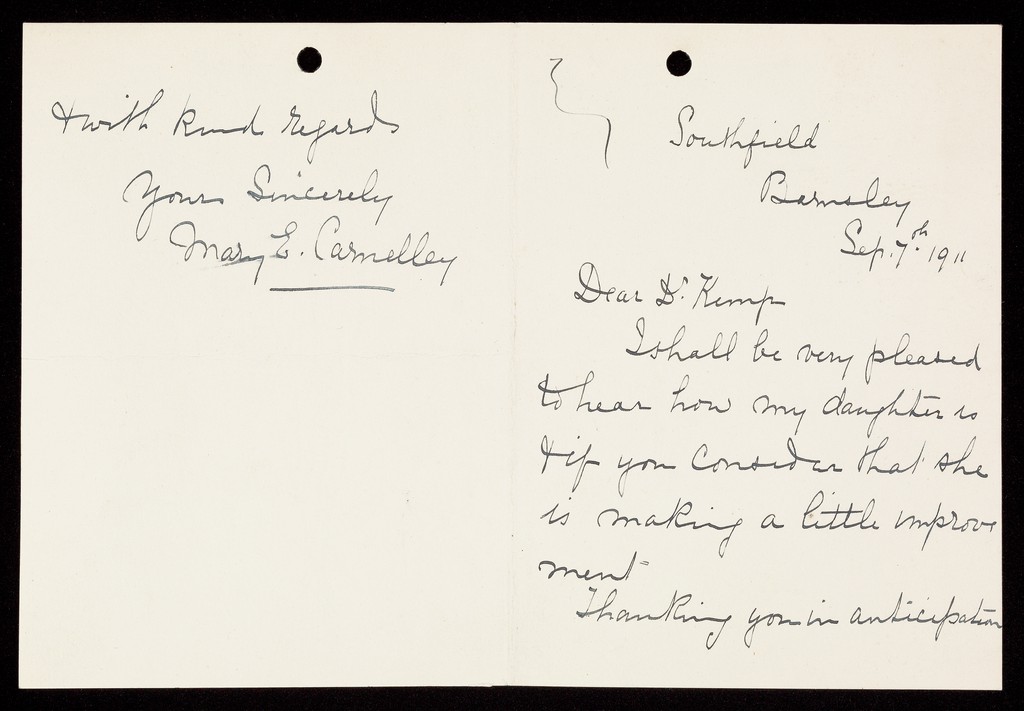 Southfield
Barnsley
Sep. 7th. 1911
Dear Dr Kemp
I shall be very pleased
to hear how my daughter is
& if you consider that she
is making a little improve
ment
Thanking you in anticipation
& with kind regards
Yours Sincerely
Mary E. Carnelley